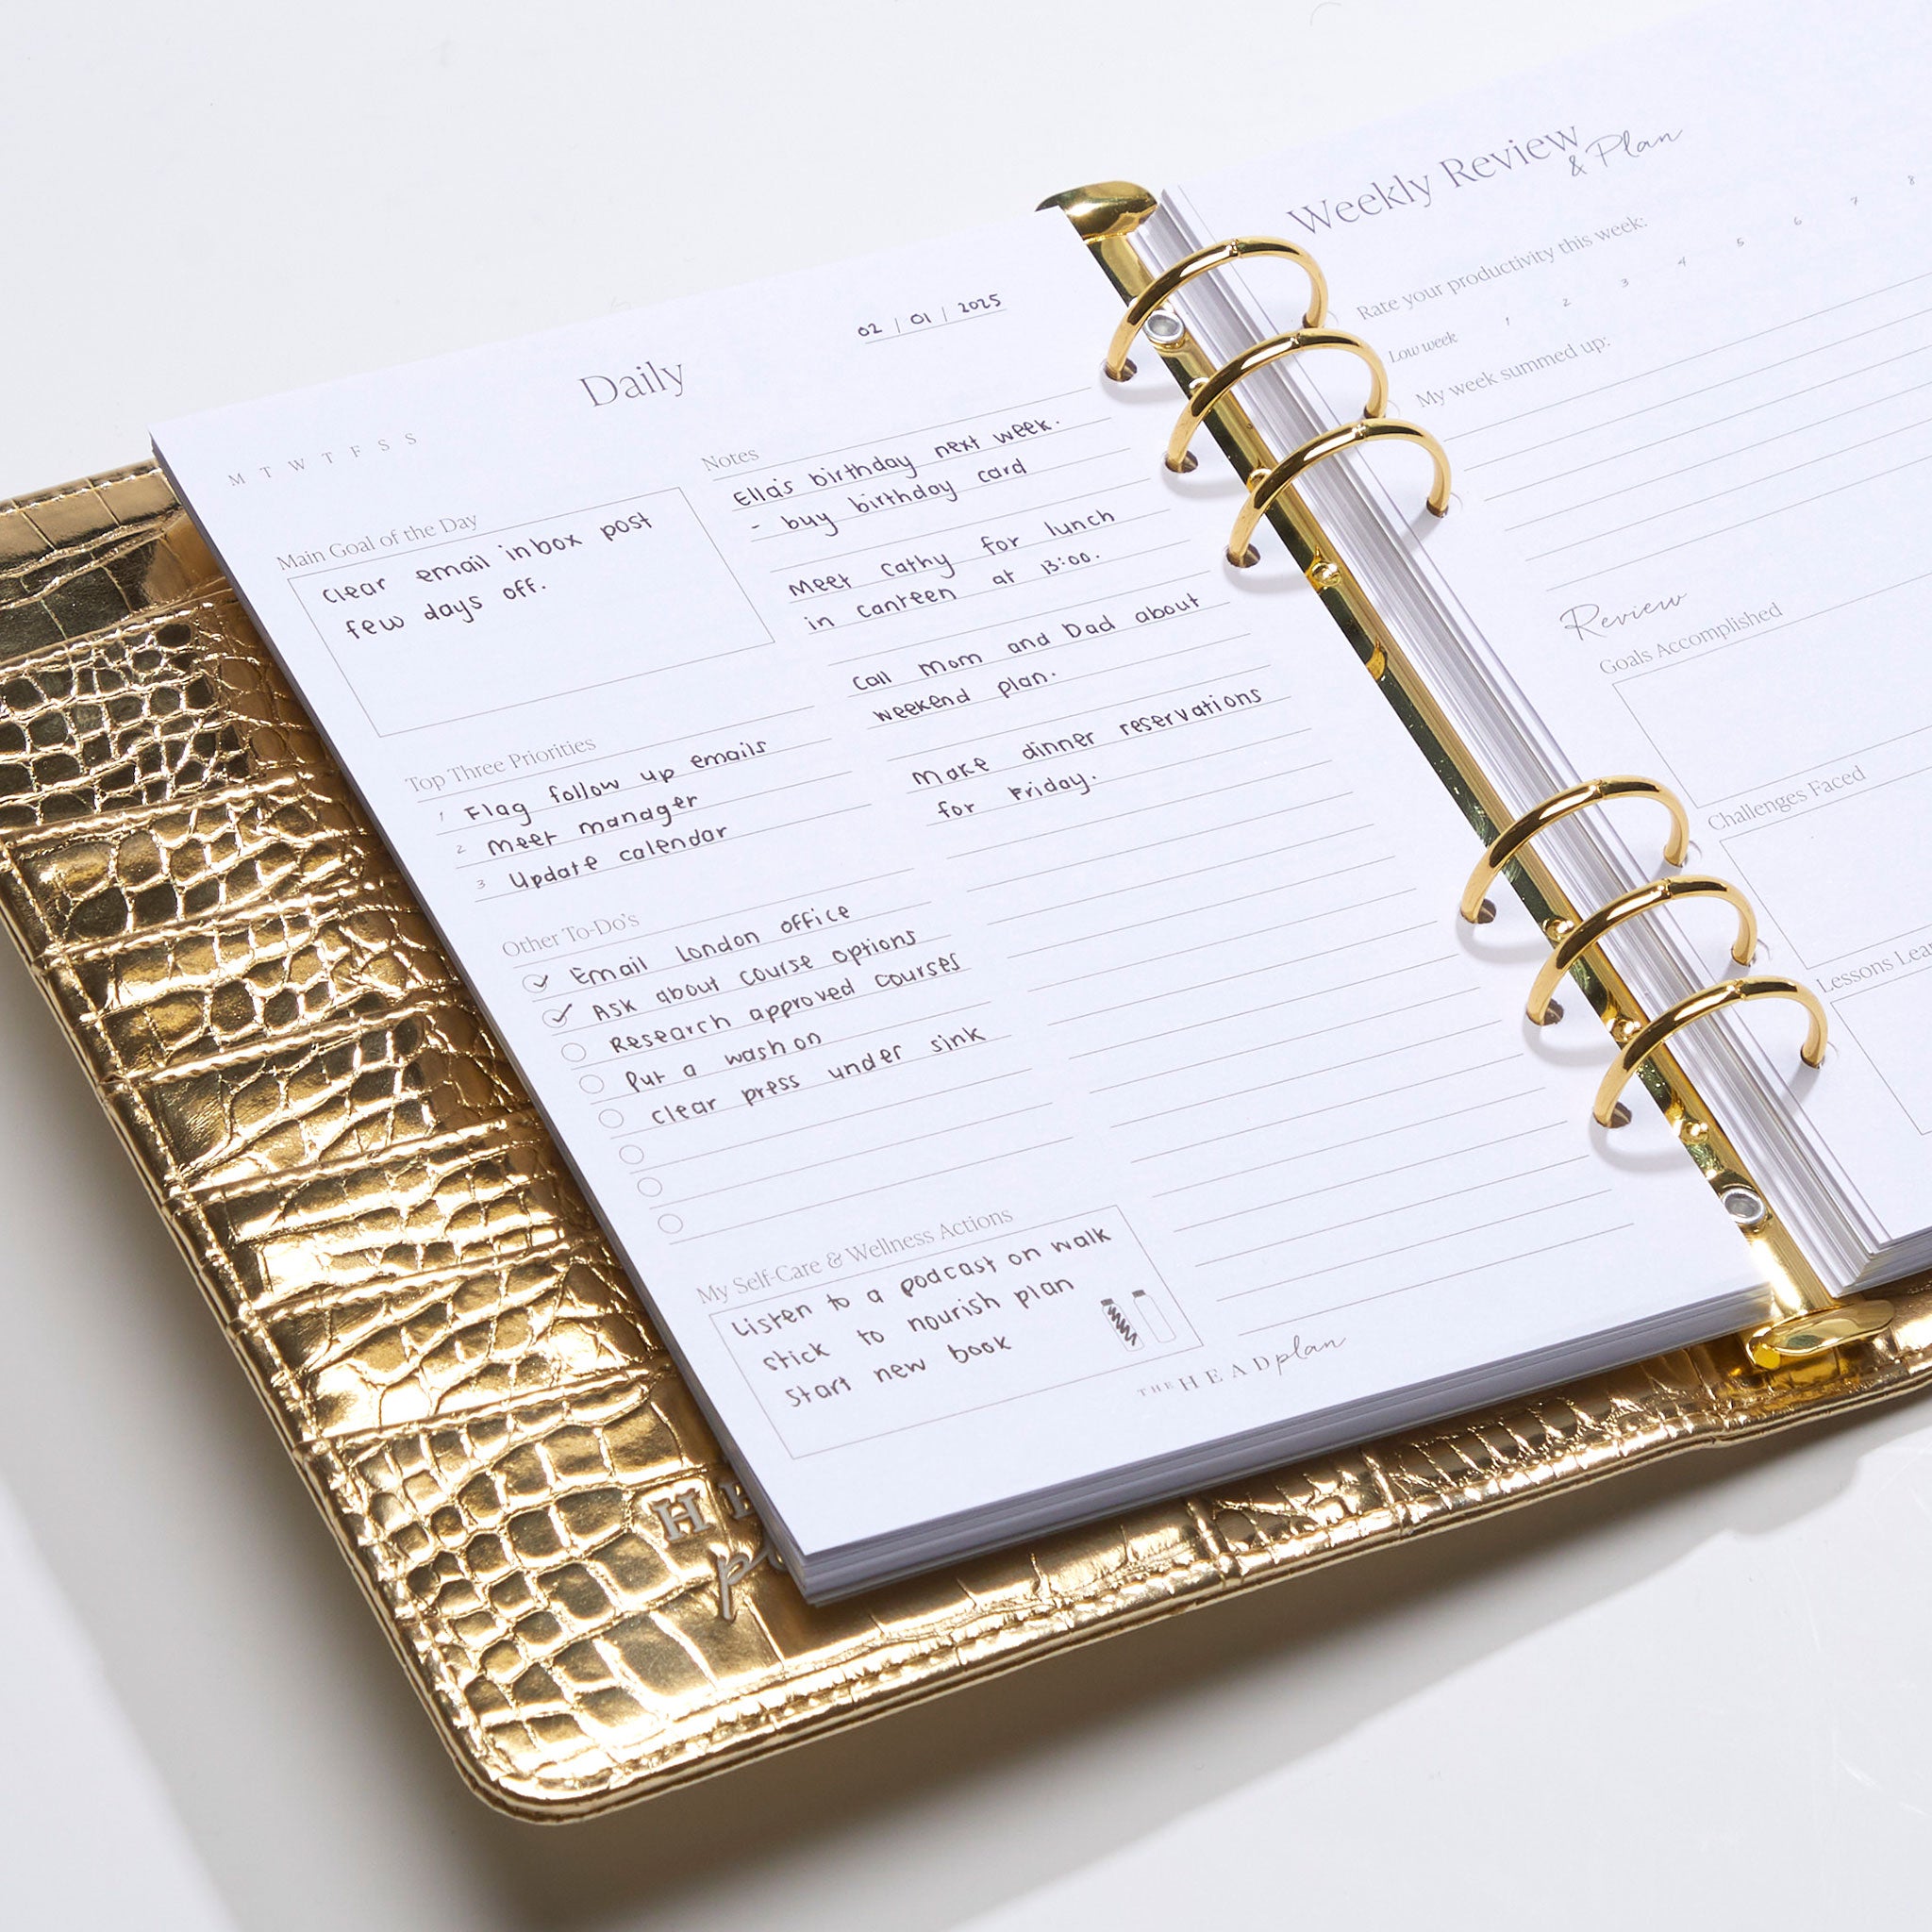 Daily
02 / 01 / 2025
M T W T F S S
Main Goal of the Day
Clear email inbox post
few days off.
Top Three Priorities
1 Flag follow up emails
2 meet manager
3 update calendar
Other To-Do's
Email London office
Ask about course options
Research approved courses
Put a wash on
clear press under sink
My Self-Care & Wellness Actions
Listen to a podcast on walk
stick to nourish plan
start new book
Notes
Ella's birthday next week.
- buy birthday card
Meet Cathy for lunch
in canteen at 13:00.
Call Mom and Dad about
weekend plan.
Make dinner reservations
for Friday.
THE HEAD plan
Weekly Review
& Plan
Rate your productivity this week:
Low week 1 2 3 4 5 6 7 8
My week summed up:
Review
Goals Accomplished
Challenges Faced
Lessons